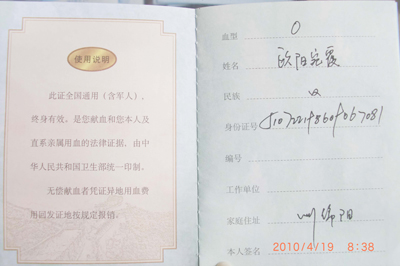 使用说明
此证全国通用（含军人），
终身有效。是您献血和您本人及
直系亲属用血的法律证据。由中
华人民共和国卫生部统一印制。
无偿献血者凭证异地用血费
用回发证地按规定报销。
血型 O
姓名 欧阳
民族 汉
身份证号
编号
工作单位
家庭住址 绵阳
本人签名
2010/4/19 8:38